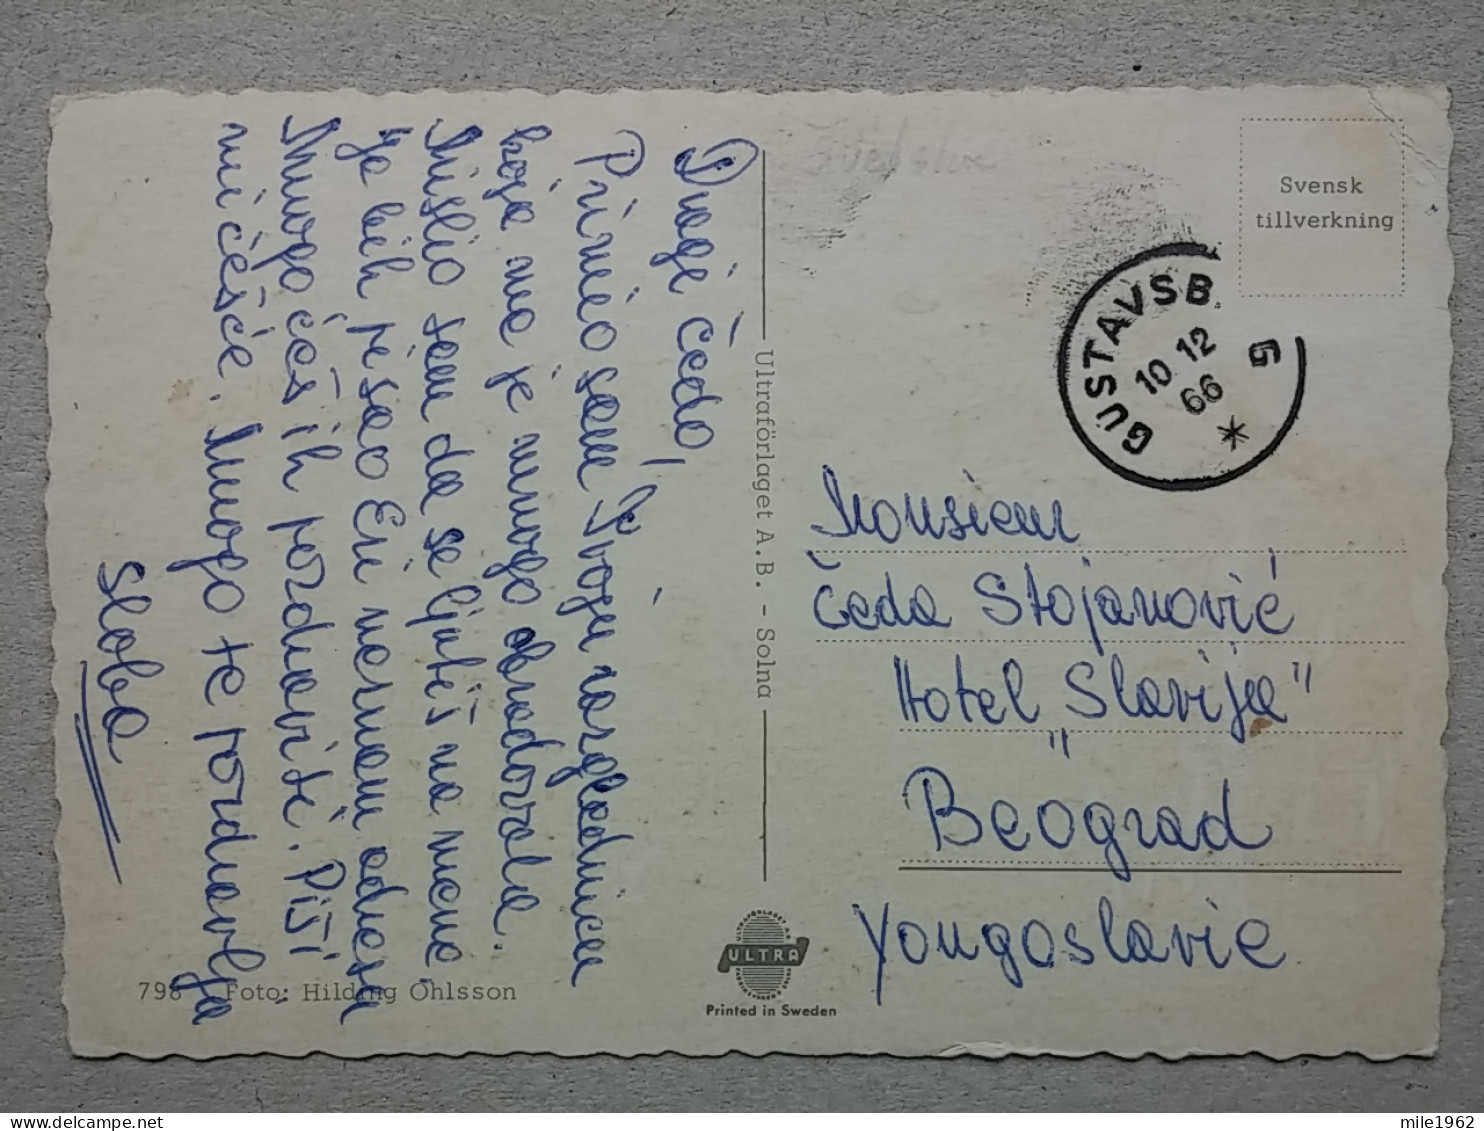 Dragi Čedo,
Primio sam Tvoju razglednicu
koja me je mnogo obradovala.
Mislio sam da se ljutiš na mene,
je bih pisao Eri
Mnogo ćeš ih pozdraviti. Piši
mi češće. Mnogo te pozdravlja
Sloba
Ultraförlaget A.B. - Solna
798 Foto: Hilding Ohlsson
ULTRA
Printed in Sweden
Svensk
tillverkning
GUSTAVSB G
10 12
66
Monsieur
Čeda Stojanović
Hotel "Slavija"
Beograd
Yougoslavie
mile1962